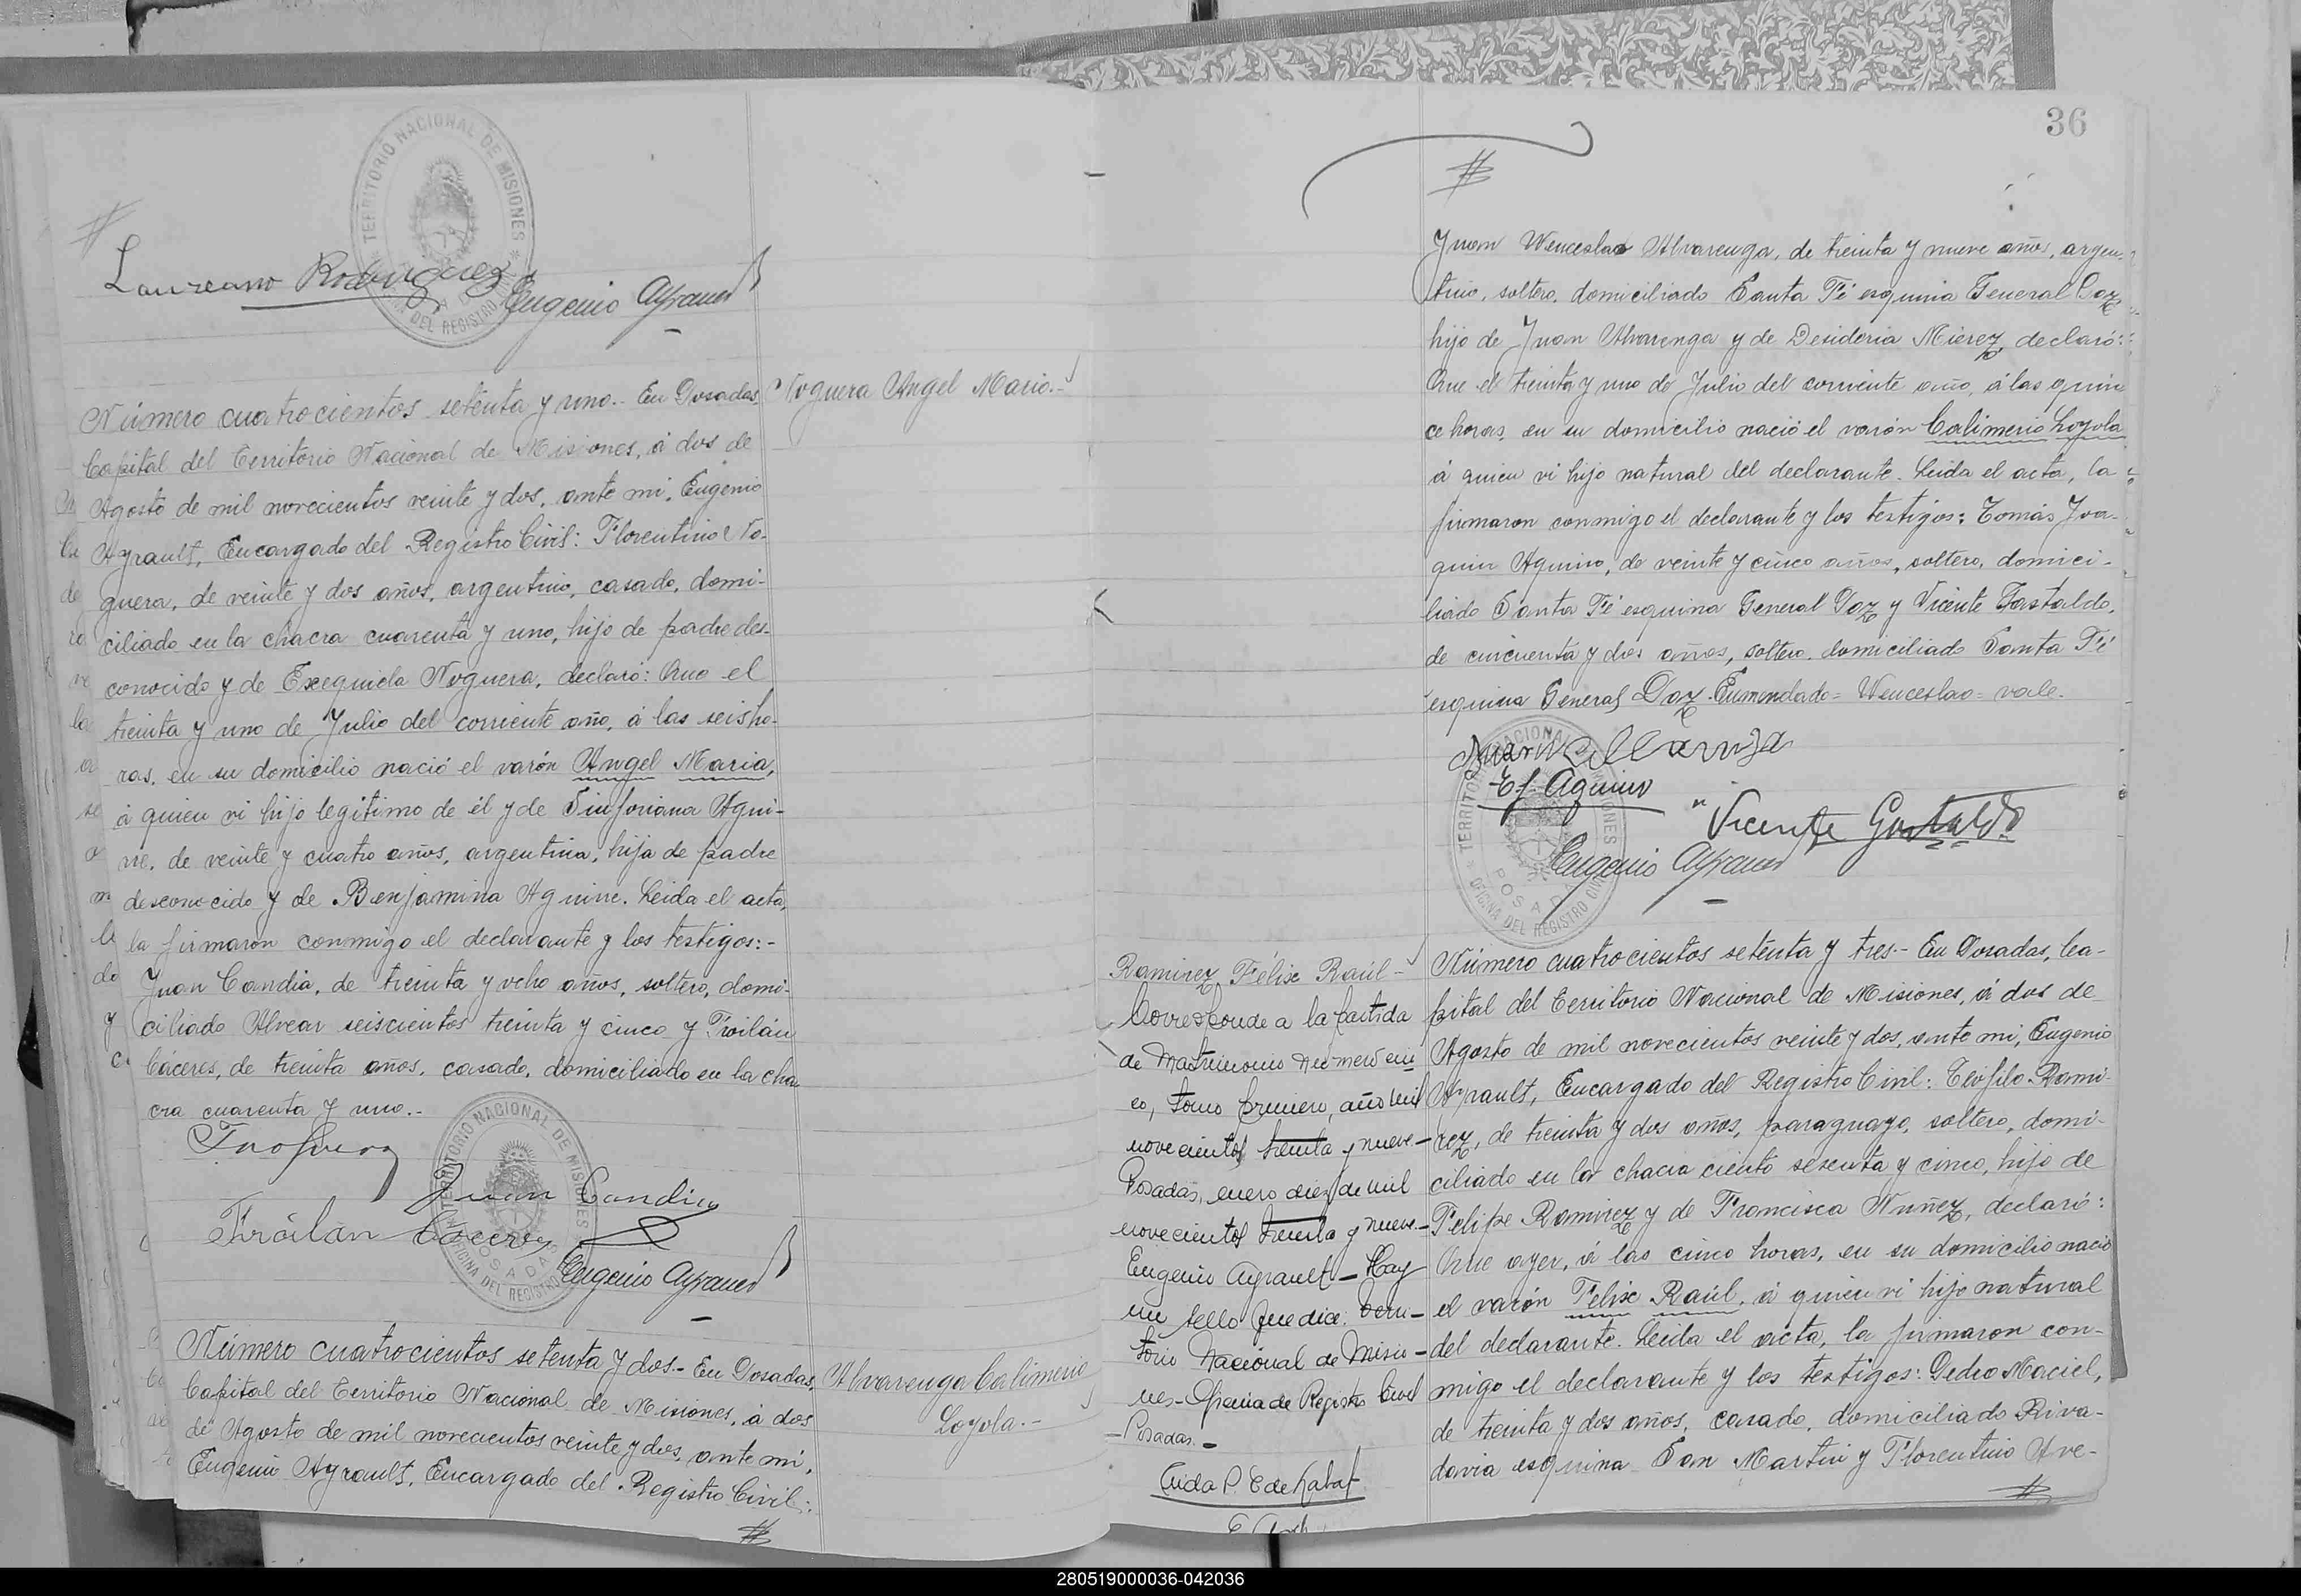 #
TERRITORIO NACIONAL DE MISIONES
OFICINA DEL REGISTRO
Laureano Rodriguez
Eugenio Ayrault
Número cuatrocientos setenta y uno.- En Posadas,
Capital del Territorio Nacional de Misiones, á dos de
Agosto de mil novecientos veinte y dos, ante mi, Eugenio
Ayrault, Encargado del Registro Civil: Florentino No-
guera, de veinte y dos años, argentino, casado, domi-
ciliado en la chacra cuarenta y uno, hijo de padre des-
conocido y de Exequiela Noguera, declaró: Que el
treinta y uno de Julio del corriente año, á las seis ho-
ras, en su domicilio nació el varón Angel Maria,
á quien vi hijo legitimo de él y de Sinforiana Agui-
rre, de veinte y cuatro años, argentina, hija de padre
desconocido y de Benjamina Aguirre. Leida el acta,
la firmaron conmigo el declarante y los testigos:-
Juan Candia, de treinta y ocho años, soltero, domi-
ciliado Alvear seiscientos treinta y cinco y Froilán
Cáceres, de treinta años, casado, domiciliado en la cha
cra cuarenta y uno.-
Noguera Angel Mario.-
Juan Candia
Froilan Caceres
Eugenio Ayrault
TERRITORIO NACIONAL DE MISIONES
OFICINA DEL REGISTRO
POSADAS
Número cuatrocientos setenta y dos.- En Posadas,
Capital del Territorio Nacional de Misiones, á dos
de Agosto de mil novecientos veinte y dos, ante mi,
Eugenio Ayrault, Encargado del Registro Civil:
#
Alvarenga Calimerio
Loyola.-
36
#
Juan Wenceslao Alvarenga, de treinta y nueve años, argen-
tino, soltero, domiciliado Santa Fé esquina General Paz,
hijo de Juan Alvarenga y de Desideria Mierez, declaró:
Que el treinta y uno de Julio del corriente año, á las quin
ce horas, en su domicilio nació el varón Calimerio Loyola
á quien vi hijo natural del declarante. Leida el acta, la
firmaron conmigo el declarante y los testigos: Tomás Joa-
quin Aquino, de veinte y cinco años, soltero, domici-
liado Santa Fé esquina General Paz y Vicente Gastaldo,
de cincuenta y dos años, soltero, domiciliado Santa Fé
esquina General Paz. Enmendado= Wenceslao= vale.
Aquino
Vicente Gastaldo
Eugenio Ayrault
POSADAS
OFICINA DEL REGISTRO CIVIL
Ramirez, Félix Raúl-
Corresponde a la partida
de Matrimonio número cin
co, tomo primero, año mil
novecientos treinta y nueve-
Posadas, enero diez de mil
novecientos treinta y nueve-
Eugenio Ayrault- Hay
un sello que dice: Terri-
torio Nacional de Misio-
nes- Oficina de Registro Civil
-Posadas.-
Número cuatrocientos setenta y tres.- En Posadas, Ca-
pital del Territorio Nacional de Misiones, á dos de
Agosto de mil novecientos veinte y dos, ante mi, Eugenio
Ayrault, Encargado del Registro Civil: Teófilo Rami-
rez, de treinta y dos años, paraguayo, soltero, domi-
ciliado en la chacra ciento sesenta y cinco, hijo de
Felipe Ramirez y de Francisca Nuñez, declaró:
Que ayer, á las cinco horas, en su domicilio nació
el varón Felix Raúl, á quien vi hijo natural
del declarante. Leida el acta, la firmaron con-
migo el declarante y los testigos: Pedro Maciel,
de treinta y dos años, casado, domiciliado Riva-
davia esquina San Martin y Florentino Ave-
#
280519000036-042036